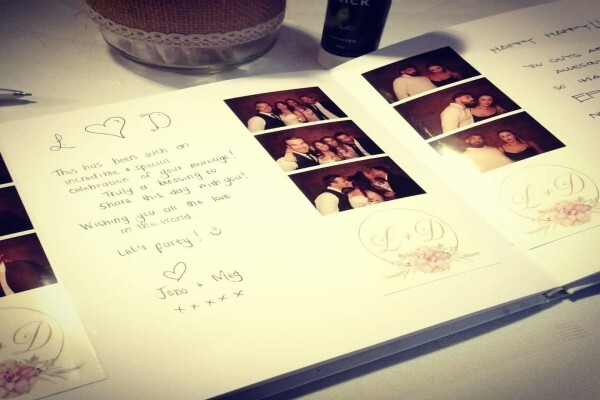 L ♡ D
This has been such an
incredible & special
celebration of your marriage!
Truly a blessing to
share this day with you!
Wishing you all the love
in the world.
Let's party! ☺
♡
Jono & Meg
x x x x x
L + D
HAPPY HAPPY!!
YOU GUYS
AWESOME
SO
L + D
+ D